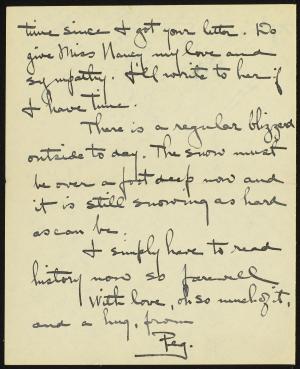 time since I got your letter. Do
give Miss Nancy my love and
sympathy. I'll write to her if
I have time.
There is a regular blizzard
outside to day. The snow must
be over a foot deep now and
it is still snowing as hard
as can be.
I simply have to read
history now so farewell
With love, oh so much of it,
and a hug, from
Peg.